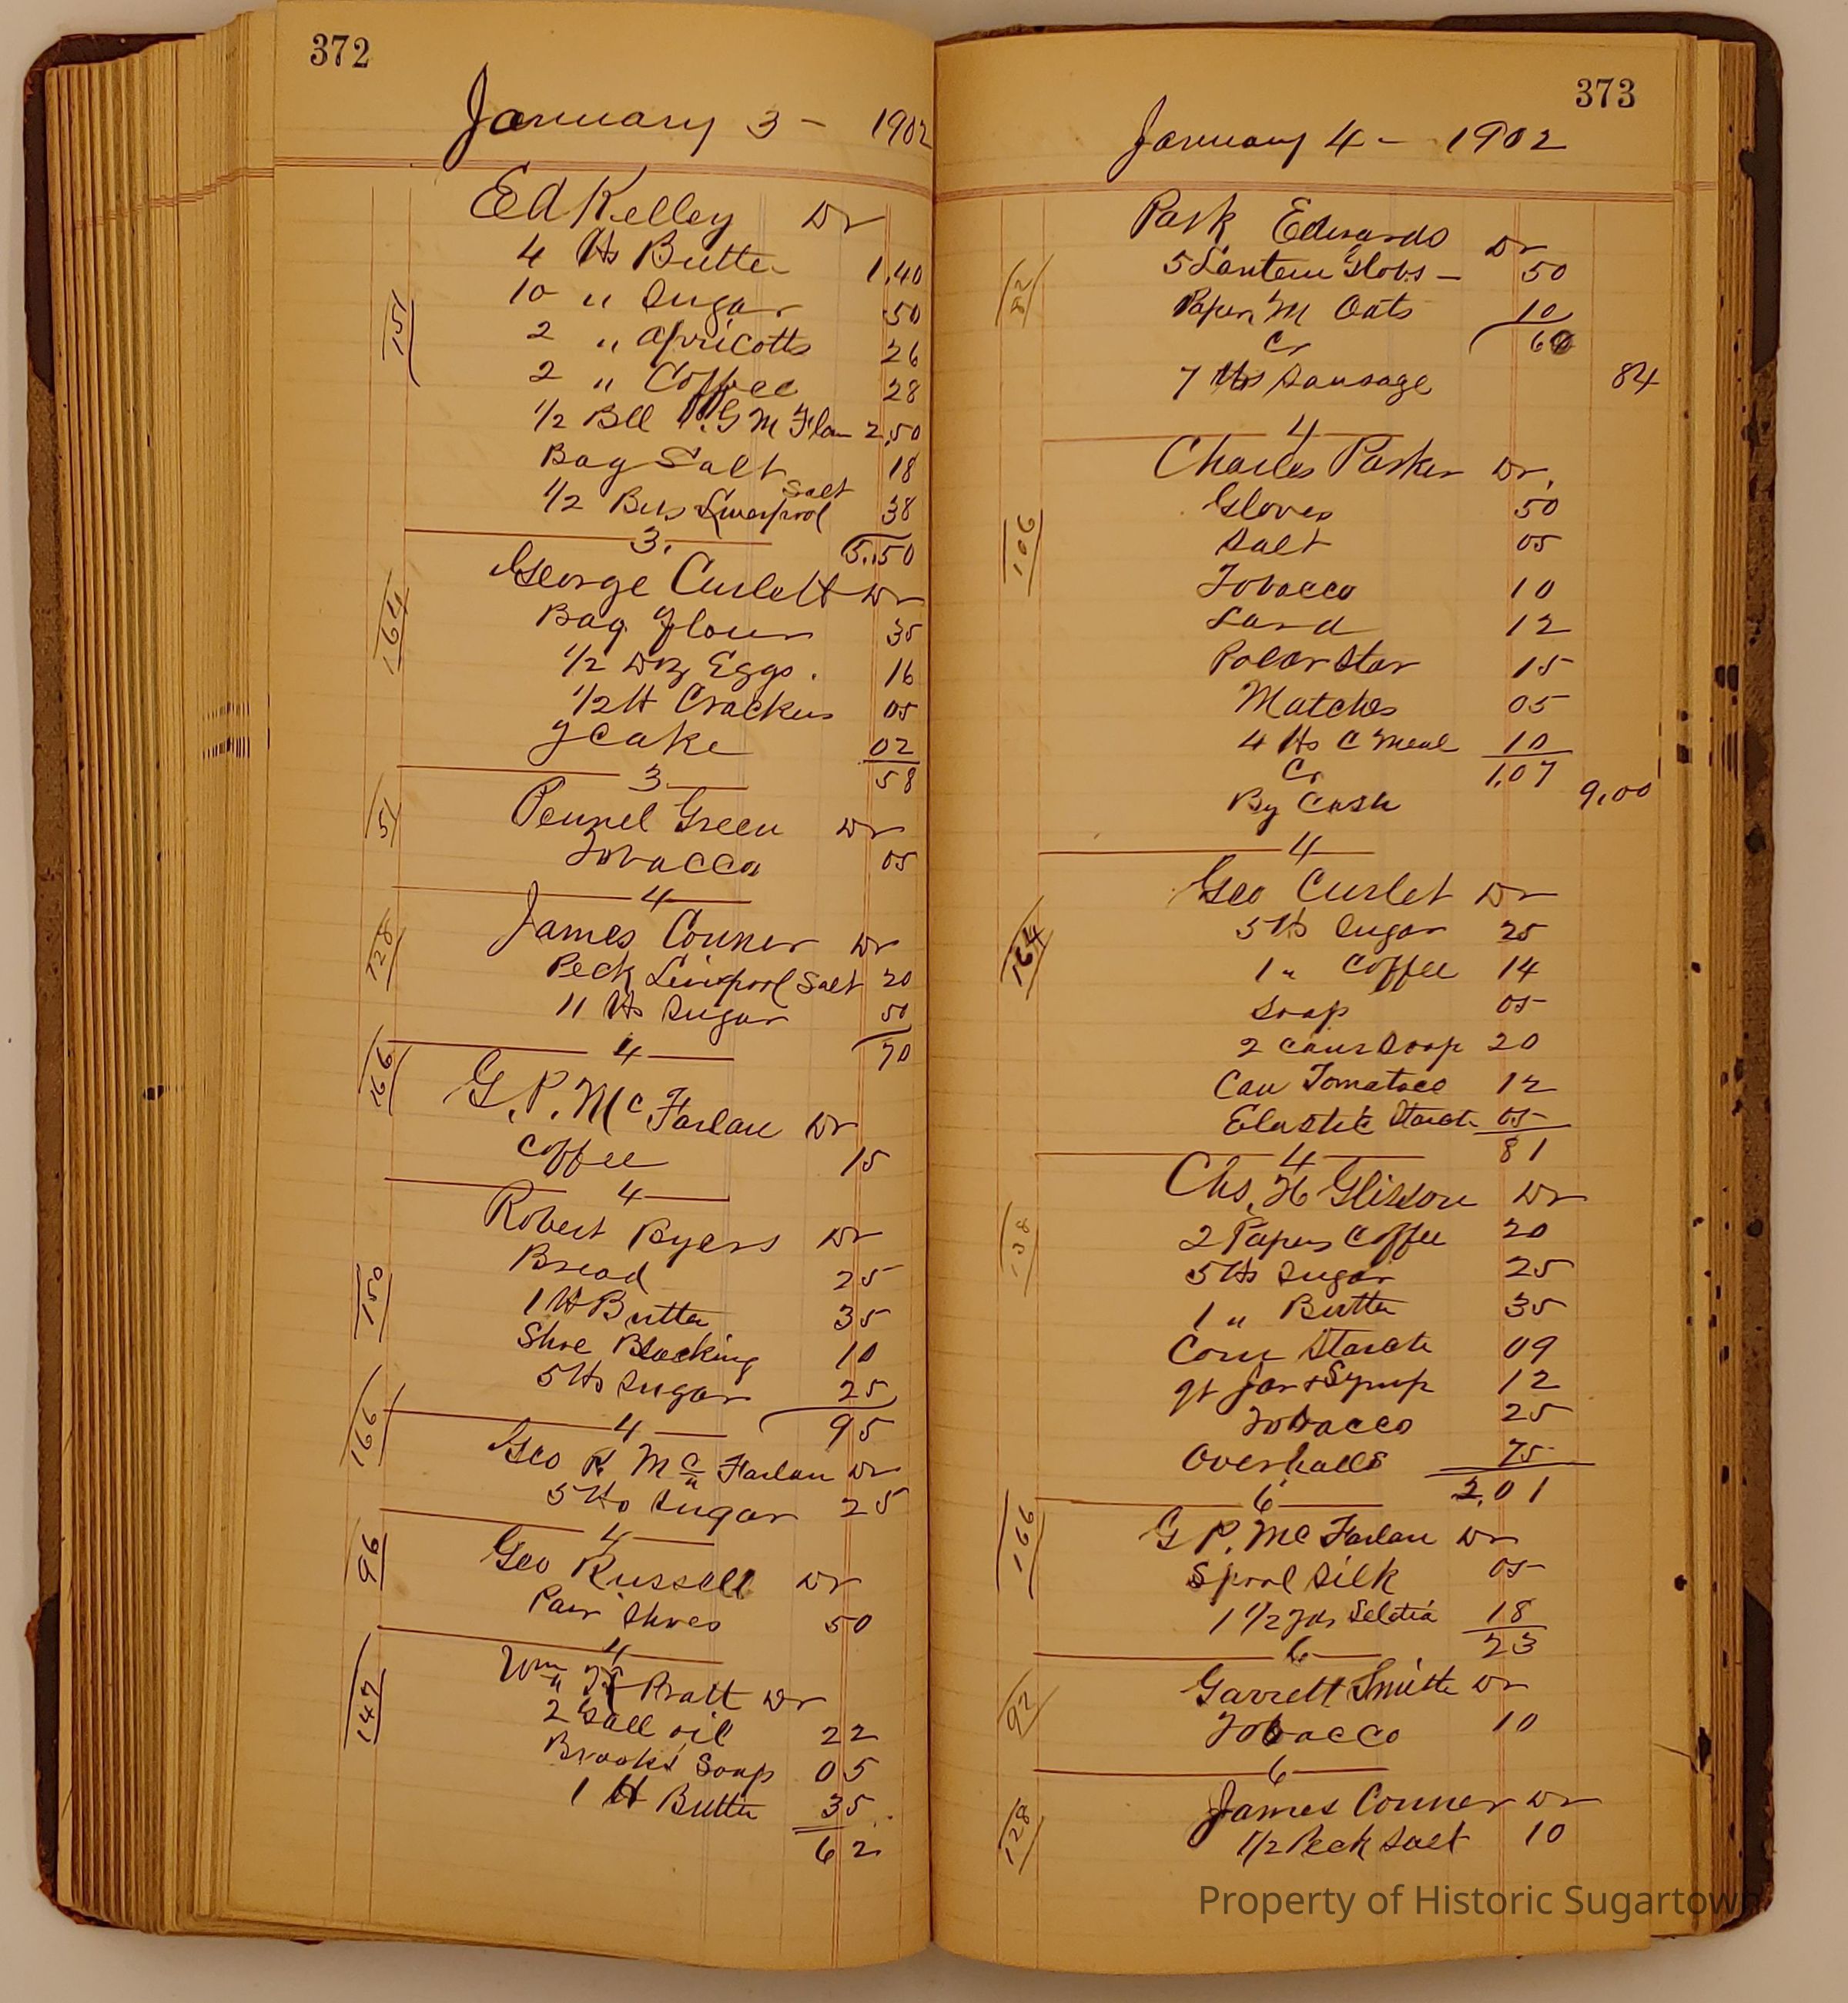 372
January 3 - 1902
Ed Kelley Dr
151
4 lbs Butter 1.40
10 " Sugar 50
2 " Apricotts 26
2 " Coffee 28
1/2 Bll G M Flour 2.50
Bag Salt 18
1/2 Bus Liverpool Salt 38
3. 5.50
164
George Curlett Dr
Bag Flour 35
1/2 Doz Eggs. 16
1/2 lb Crackers 05
Y Cake 02
3 58
51
Pennel Green Dr
Tobacco 05
4
128
James Conner Dr
Peck Liverpool Salt 20
11 lbs Sugar 50
4 70
166
G. P. McFarlan Dr
Coffee 15
4
Robert Byers Dr
150
Bread 25
1 lb Butter 35
Shoe Blacking 10
5 lbs Sugar 25
4 95
166
Geo P. Mc Farlan Dr
5 lbs Sugar 25
4
96
Geo Russell Dr
Pair Shoes 50
4
147
Wm Pratt Dr
2 Gall oil 22
Brooks Soap 05
1 lb Butter 35
62
373
January 4 - 1902
Park Edwards Dr
82
5 Lantern Globs - 50
Paper M Oats 10
Cr 60
7 lbs Sausage 84
4
Charles Parker Dr.
106
Gloves 50
Salt 05
Tobacco 10
Lard 12
Polar Star 15
Matches 05
4 lbs C Meal 10
Cr 1.07
By Cash 9.00
4
Geo Curlet Dr
164
5 lbs Sugar 25
1 " Coffee 14
Soap 05
2 Cans Soap 20
Can Tomatoes 12
Elastic Starch 05
4 81
Chs. H Glisson Dr
138
2 Papers Coffee 20
5 lbs Sugar 25
1 " Butter 35
Corn Starch 09
qt Jar & Syrup 12
Tobacco 25
Overhalls 75
6 2.01
166
G P. McFarlan Dr
Spool Silk 05
1 1/2 yds Seletia 18
6 23
92
Garrett Smith Dr
Tobacco 10
6
128
James Conner Dr
1/2 Peck Salt 10
Property of Historic Sugartown